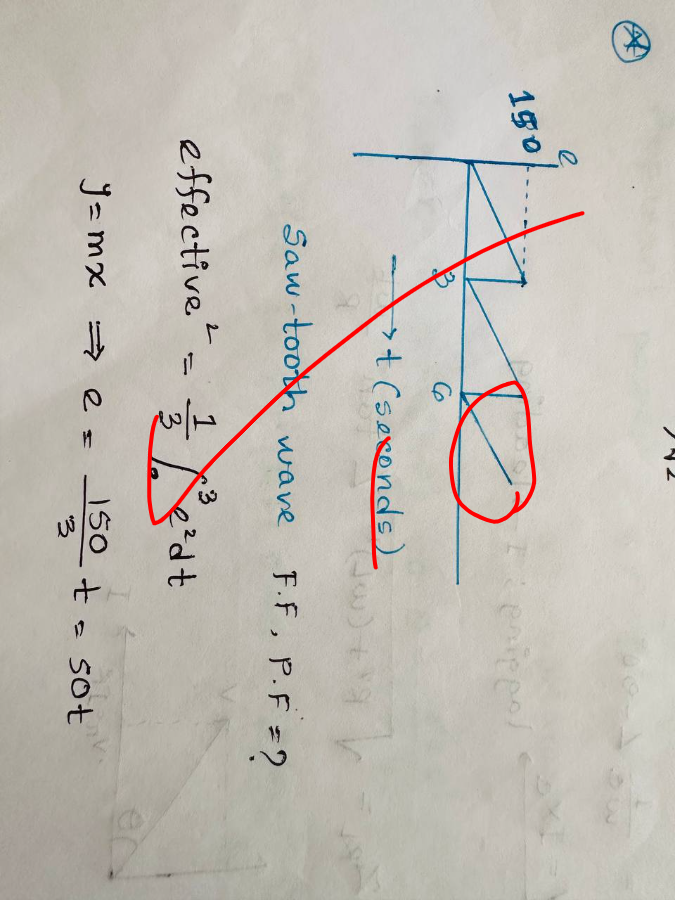 e
150
3
6
t (seconds)
Saw-tooth wave F.F, P.F = ?
effective² = 1/3 ∫₀³ e²dt
y = mx ⇒ e = 150/3 t = 50t